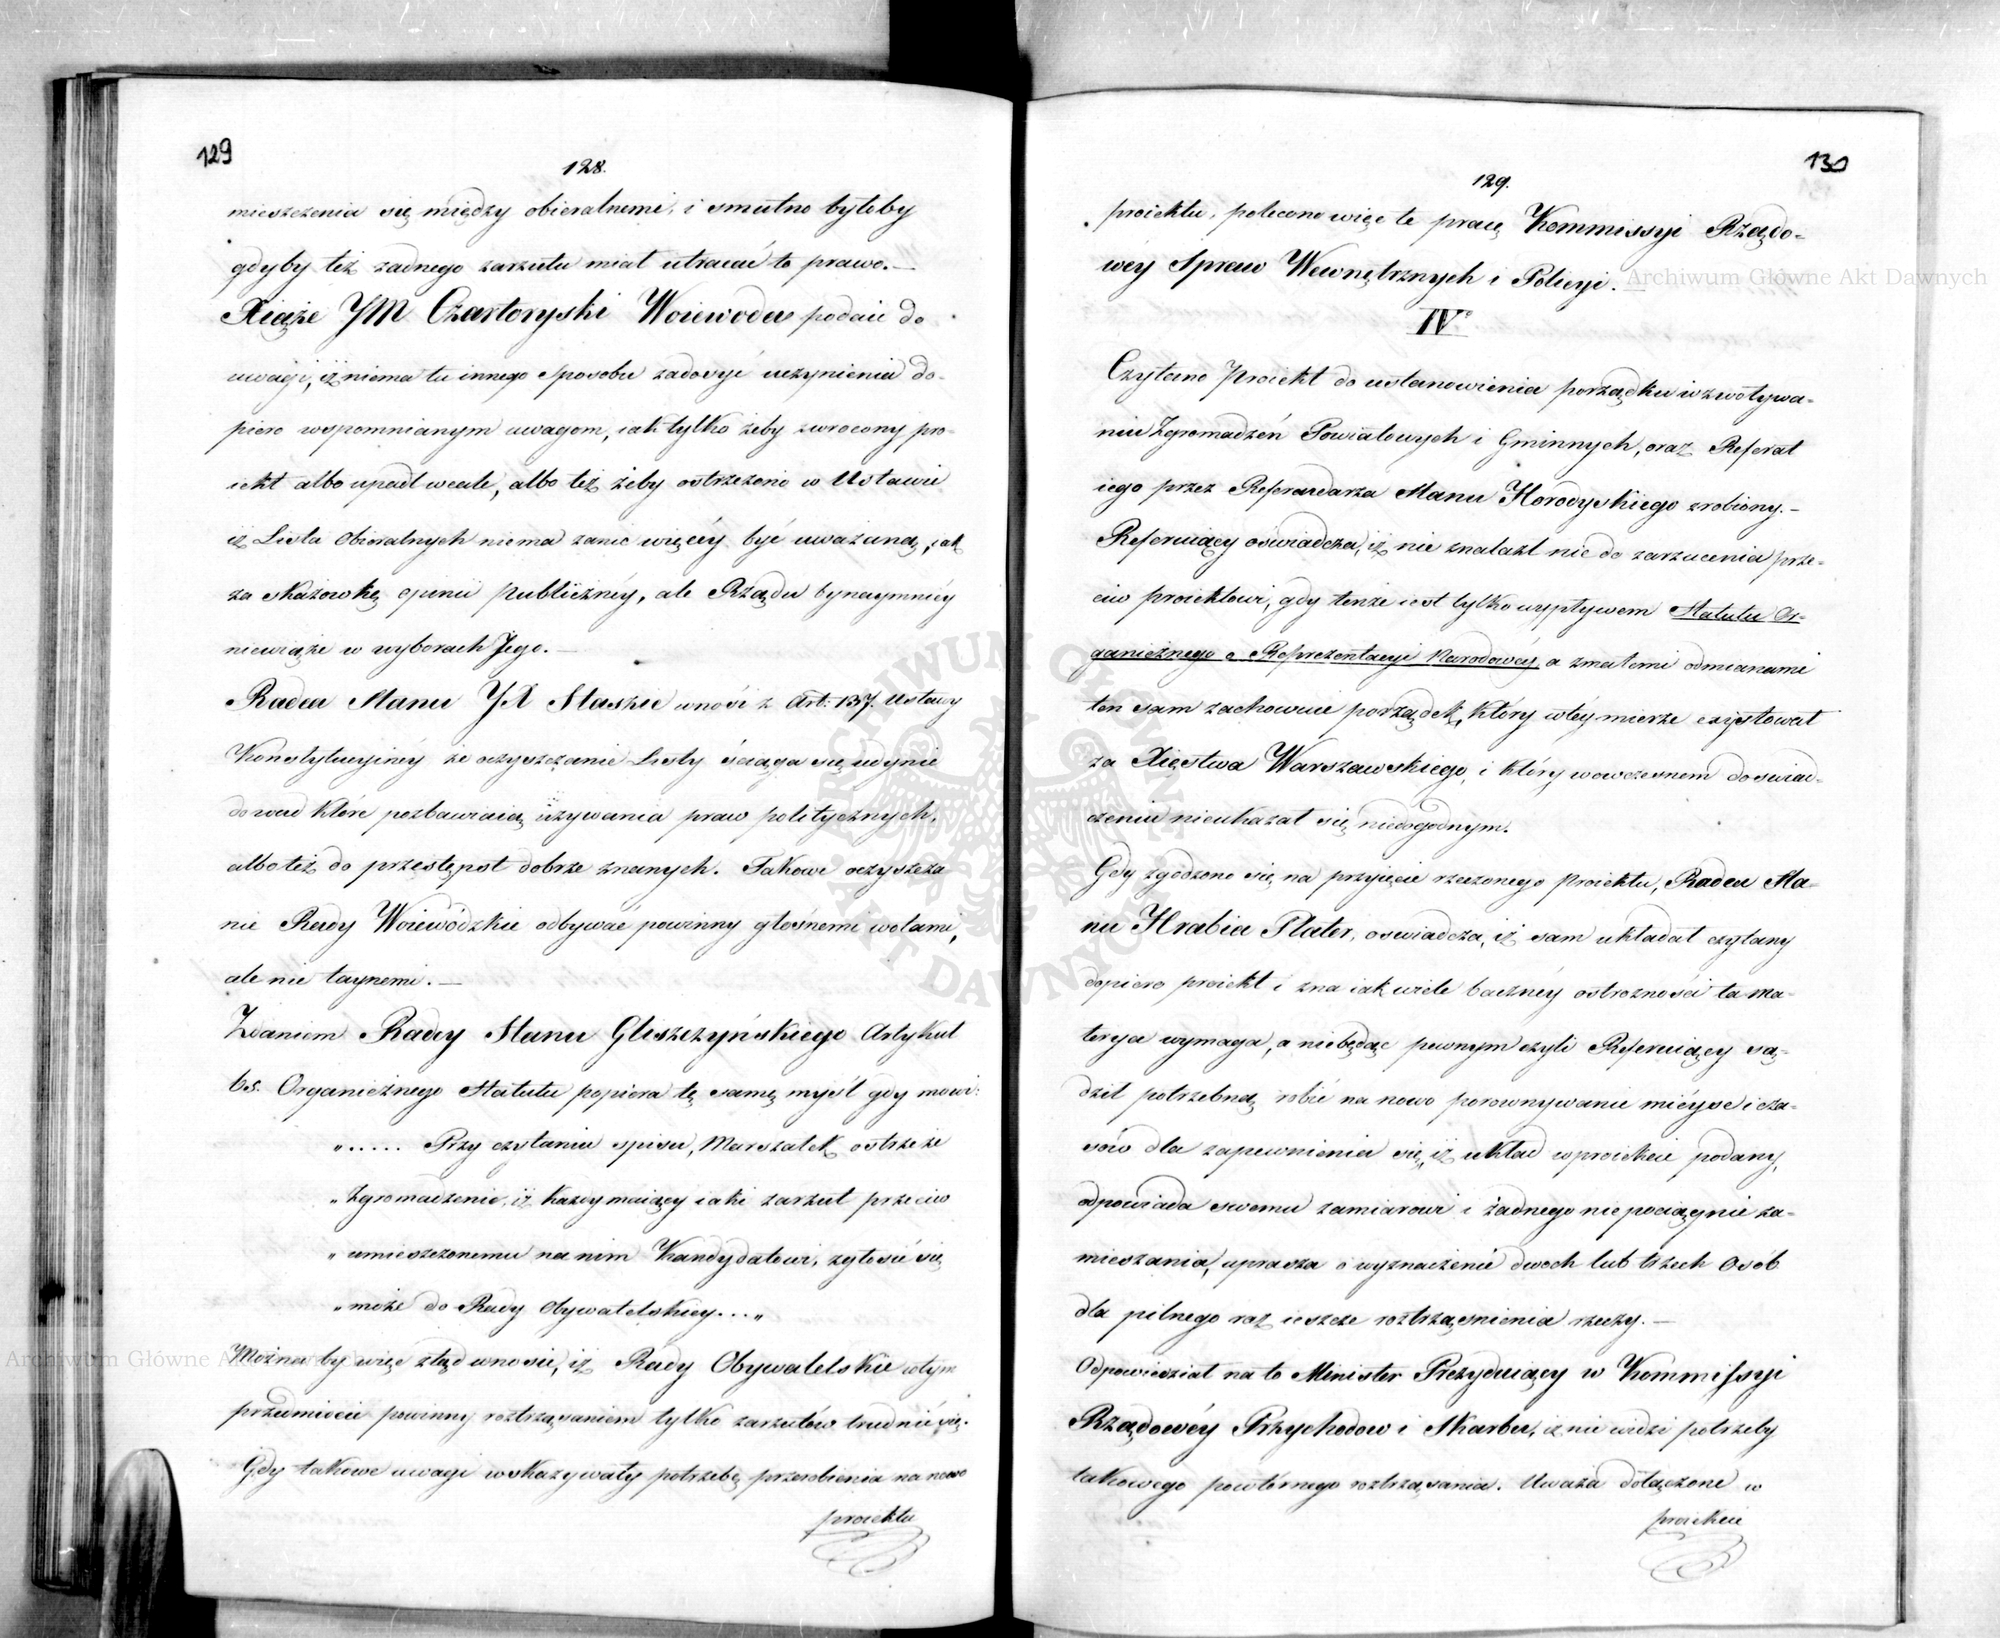 129
128.
mieszczenia się między obieralnemi, i smutno byłoby
gdyby też żadnego zarzutu miał utracać to prawo. —
Xiąże JM Czartoryski Woiewoda podaie do
uwagi, iż niema tu innego sposobu zadosyć uczynienia do-
piero wspomnianym uwagom, iak tylko żeby zwrocony pro-
iekt albo upadł wcale, albo też żeby ostrzeżono w Ustawie
iż Lista Obieralnych niema zanic więcéy być uważaną, iak
za skazowkę opinii publicznéy, ale Rządu bynaymniéy
niewiąże w wyborach Jego. —
Radca Stanu JX Staszic wnosi z Art: 137. Ustawy
Konstytucyinéy że oczyszczanie Listy ściąga się iedynie
do wad które pozbawiaią używania praw politycznych,
albo też do przestępst dobrze znanych. Takowe oczyszcza
nie Rady Woiewódzkie odbywać powinny głośnemi wotami,
ale nie taynemi. —
Zdaniem Radcy Stanu Gliszczyńskiego Artykuł
65. Organicznego Statutu popiera tę samę myśl gdy mowi:
„..... Przy czytaniu spisu, Marszałek ostrzeże
„Zgromadzenie, iż każdy maiący iaki zarzut przeciw
„umieszczonemu na nim Kandydatowi, zgłosić się
„może do Rady Obywatelskiey...„
Można by więc ztąd wnosić, iż Rady Obywatelskie w tym
przedmiocie powinny roztrząsaniem tylko zarzutów trudnić się.
Gdy takowe uwagi wskazywały potrzebę przerobienia na nowo
proiektu
130
129.
proiektu, polecono więc te pracę Kommissyi Rządo-
wéy Spraw Wewnętrznych i Policyi. —
IV°
Czytano Proiekt do ustanowienia porządku w zwoływa-
niu Zgromadzeń Powiatowych i Gminnych, oraz Referat
iego przez Referendarza Stanu Horodyskiego zrobiony. —
Referuiący oświadcza, iż nie znalazł nic do zarzucenia prze-
ciw proiektowi, gdy tenże iest tylko wypływem Statutu Or-
ganicznego o Reprezentacyi Narodowéy, a z małemi odmianami
ten sam zachowuie porządek, który w tey mierze exystował
za Xięstwa Warszawskiego, i który w owczesnem doświad-
czeniu nieukazał się niedogodnym.
Gdy zgodzono się na przyięcie rzeczonego Proiektu, Radca Sta-
nu Hrabia Plater, oświadcza, iż sam układał czytany
dopiero proiekt i zna iak wiele bacznéy ostrożności ta ma-
terya wymaga, a niebędąc pewnym czyli Referuiący są-
dził potrzebną robić na nowo porownywanie mieysc i cza-
sów dla zapewnienia się, iż układ w proiekcie podany,
odpowiada swemu zamiarowi i żadnego nie pociągnie za-
mieszania, uprasza o wyznaczenie dwoch lub trzech Osób
dla pilnego raz ieszcze roztrząśnienia rzeczy. —
Odpowiedział na to Minister Prezyduiący w Kommissyi
Rządowéy Przychodow i Skarbu, iż nie widzi potrzeby
takowego powtórnego roztrząsania. Uważa dołączone w
proiekcie
Archiwum Główne Akt Dawnych